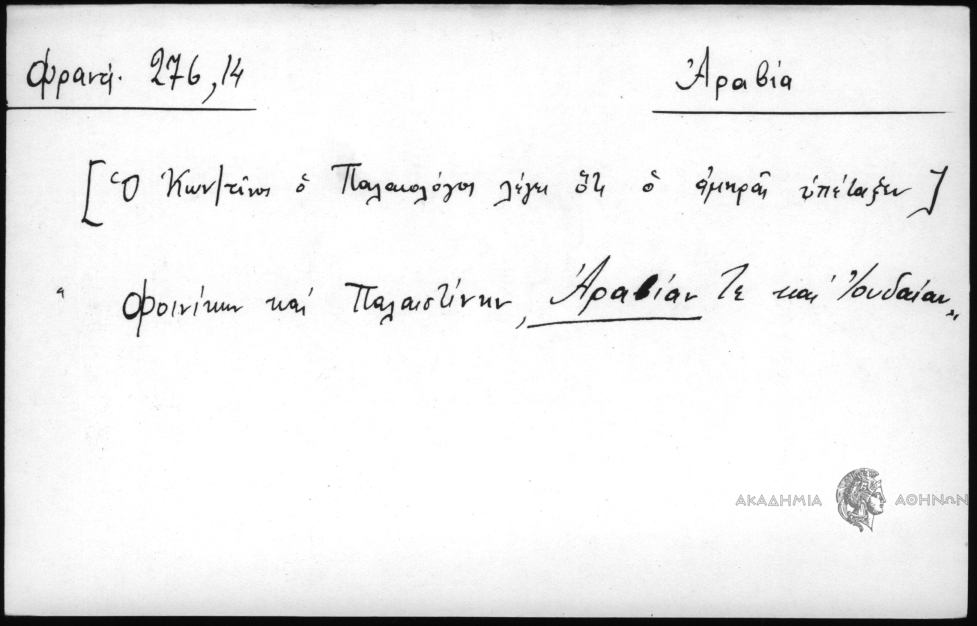 Φραντζ. 276,14
Ἀραβία
[Ὁ Κων/τῖνος ὁ Παλαιολόγος λέγει ὅτι ὁ ἀμηρᾶς ὑπέταξεν]
" Φοινίκην καί Παλαιστίνην, Ἀραβίαν τε καί Ἰουδαίαν "
ΑΚΑΔΗΜΙΑ ΑΘΗΝΩΝ